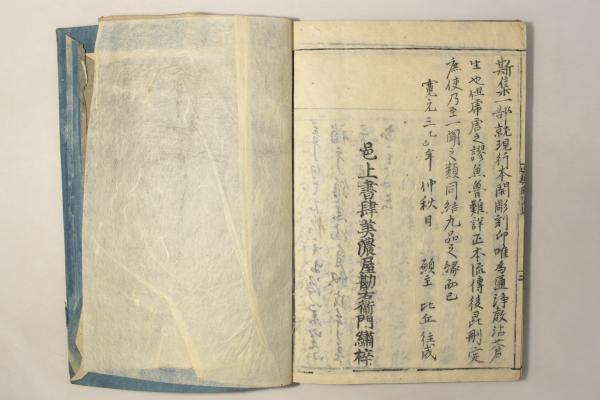 斯集一部就現行本開彫刻印唯為通浄教沾蒼
生也但焉虎之謬魚魯難詳正本流傳後昆刪定
庶使乃至一聞之類同結九品之縁而已
寛元三乙巳年仲秋日 願主 比丘往成
邑上書肆美濃屋勘右衛門繡梓